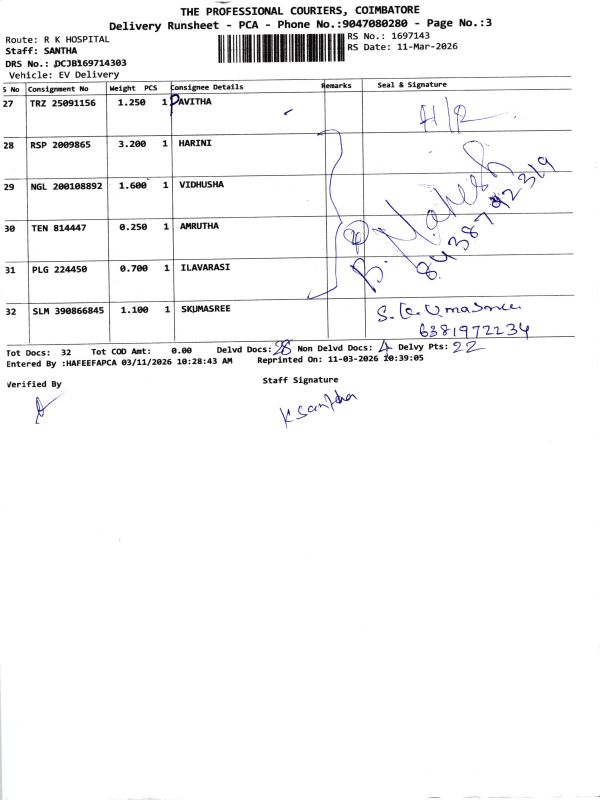 THE PROFESSIONAL COURIERS, COIMBATORE
Delivery Runsheet - PCA - Phone No.:9047080280 - Page No.:3
Route: R K HOSPITAL
RS No.: 1697143
Staff: SANTHA
RS Date: 11-Mar-2026
DRS No.: DCJB169714303
Vehicle: EV Delivery
S No Consignment No Weight PCS Consignee Details Remarks Seal & Signature
27 TRZ 25091156 1.250 1 PAVITHA H/R
28 RSP 2009865 3.200 1 HARINI
29 NGL 200108892 1.600 1 VIDHUSHA
30 TEN 814447 0.250 1 AMRUTHA
31 PLG 224450 0.700 1 ILAVARASI
B. Mahesh
8438742319
32 SLM 390866845 1.100 1 SKUMASREE
6381972234
Tot Docs: 32 Tot COD Amt: 0.00 Delvd Docs: 28 Non Delvd Docs: 4 Delvy Pts: 22
Entered By :HAFEEFAPCA 03/11/2026 10:28:43 AM Reprinted On: 11-03-2026 10:39:05
Verified By Staff Signature
K Santha